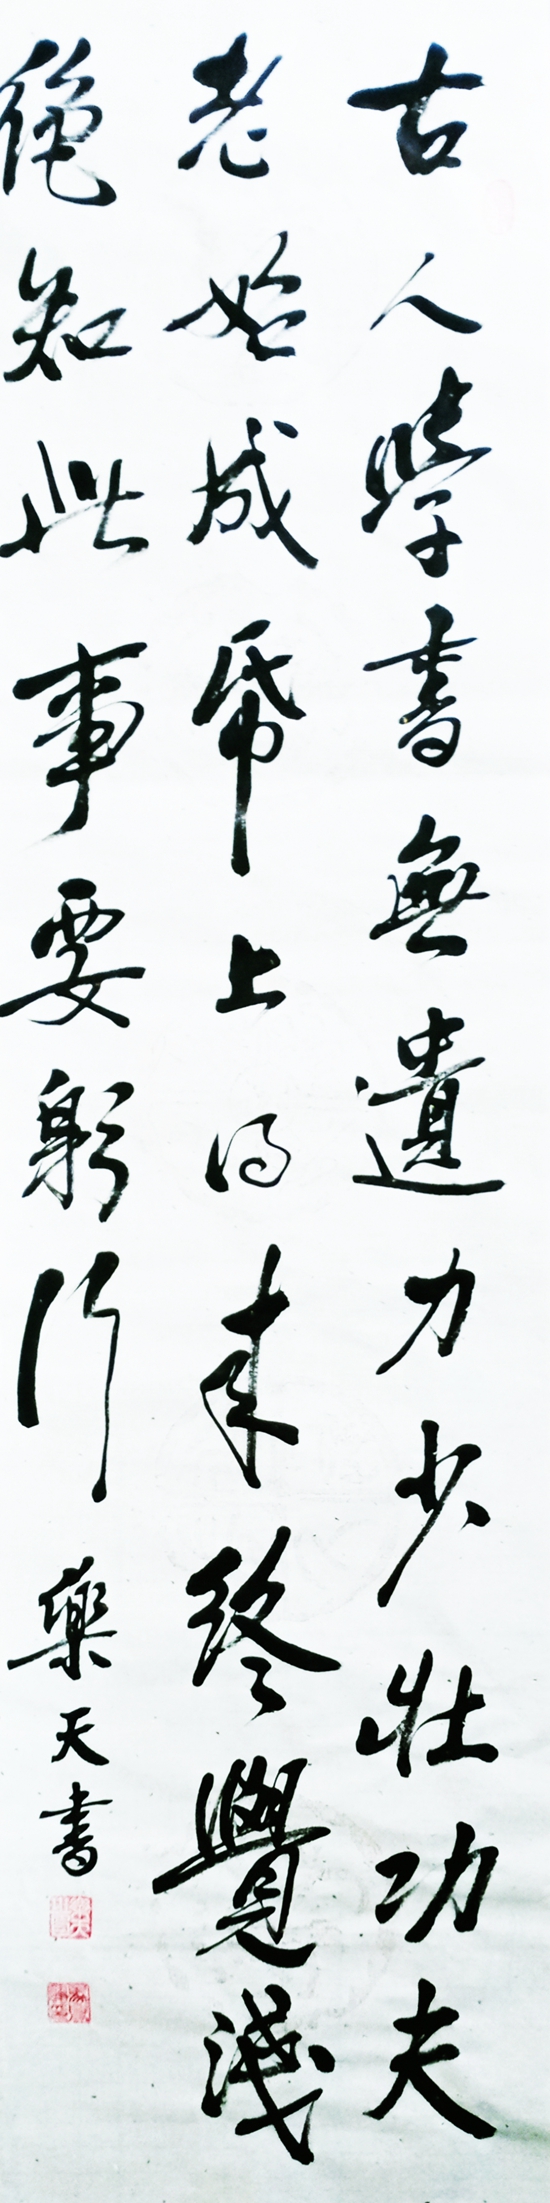 古人學書無遺力少壯功夫
老始成帋上得来終覺淺
絶知此事要躬行 樂天書